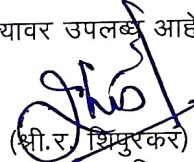 यावर उपलब्ध आहे
(श्री.र. शिंपुरकर)